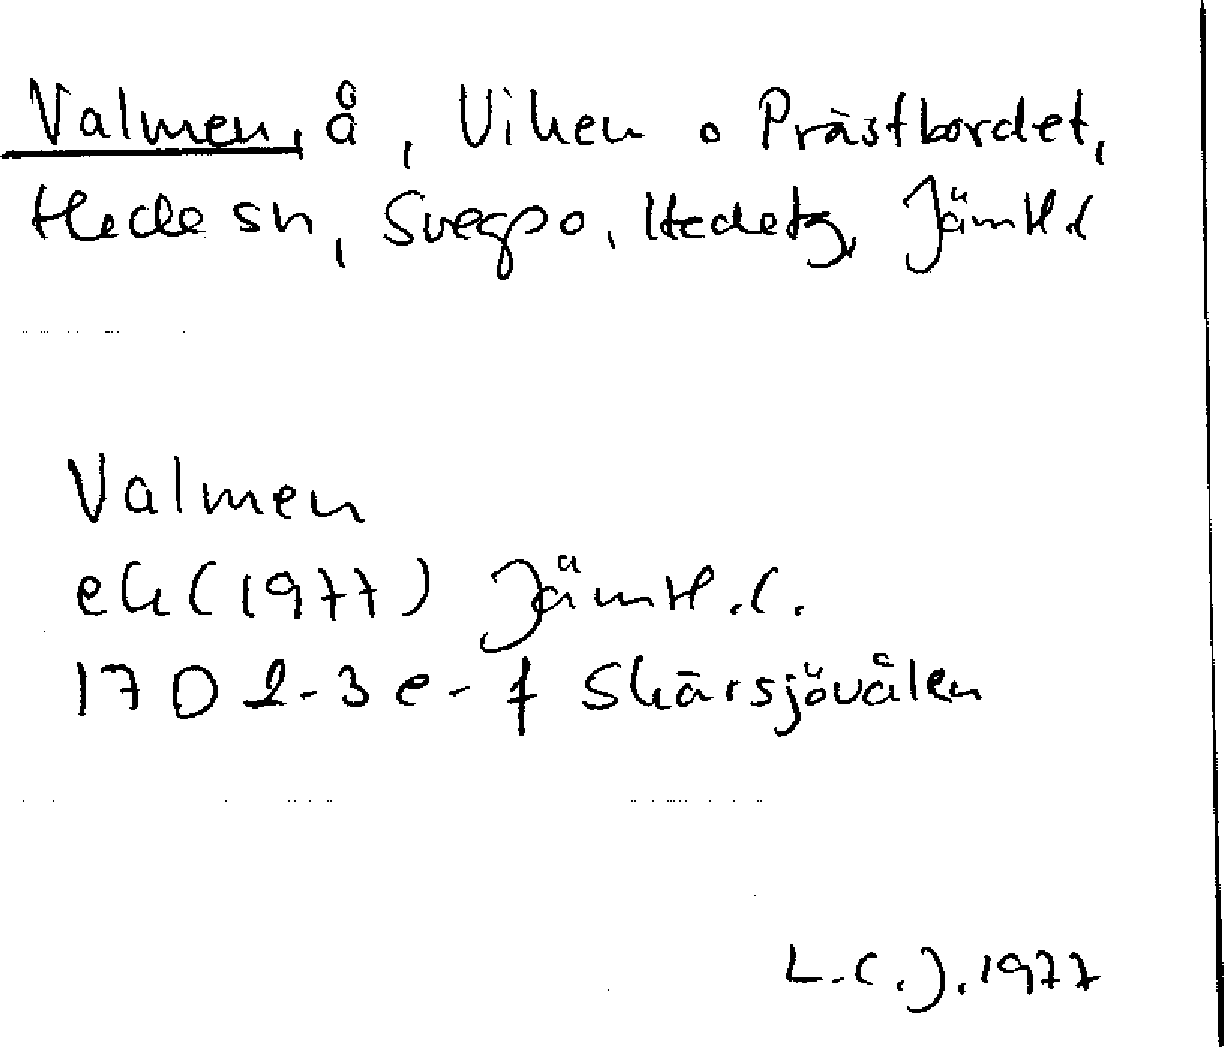 Valmen, å, Viken o Prästbordet,
Hede sn, Svegpo, Hedetg, Jämtl. l
Valmen
ek (1977) Jämtl. l.
17 D 2-3 e-f Skärsjövålen
L.C.J. 1977